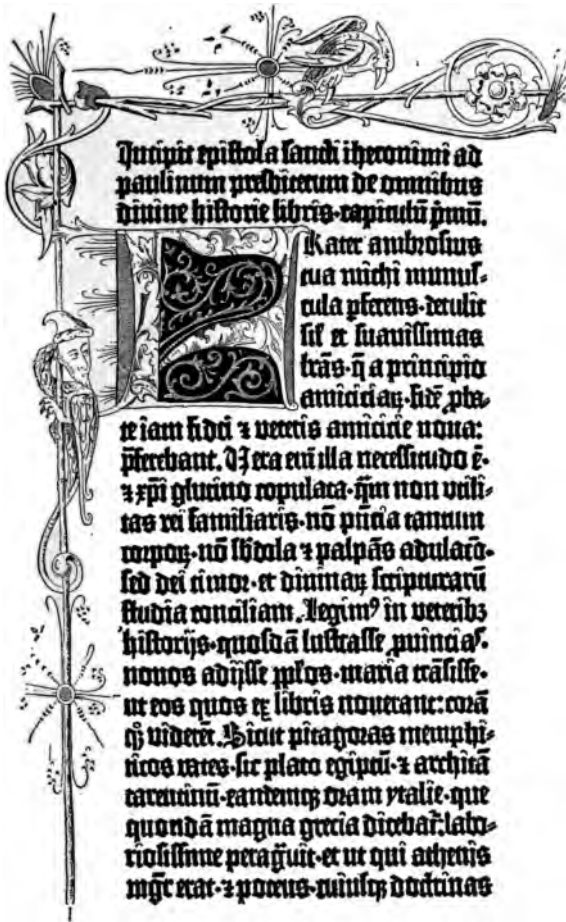 Incipit epistola sancti iheronimi ad
paulinum presbiterum de omnibus
divine historie libris·capitulū p̄mū.
Frater ambrosius
tua michi munus-
cula ꝑferens·detulit
sil̄ et suavissimas
lr̄as·q̄ a principio
amiciciaꝝ·fidē ꝓba-
te iam fidei ⁊ veteris amicicie nova:
p̄ferebant. Vera eni̅ illa necessitudo ē·
⁊ xp̄i glutino copulata·q̄m non utili-
tas rei familiaris·nō p̄ncia tantum
corpoꝝ·nō sb̄dola ⁊ palpās adulacō·
sed dei timor·et divinaꝝ scripturarū
studia conciliant. Legimꝰ in veteribꝫ
historijs·quosdā lustrasse ꝓvincias·
novos adijsse pp̄los·maria trāsisse·
ut eos quos ex libris noverant: corā
qꝫ viderēt. Sicut pitagoras memphi-
ticos vates·sic plato egiptū·⁊ architā
tarentinū·eandemqꝫ oram ytalie·que
quondā magna grecia dicebat̄: labo-
riosissime peragᷓvit·et ut qui athenis
mgr̄ erat·⁊ potens·cuiusqꝫ doctrinas